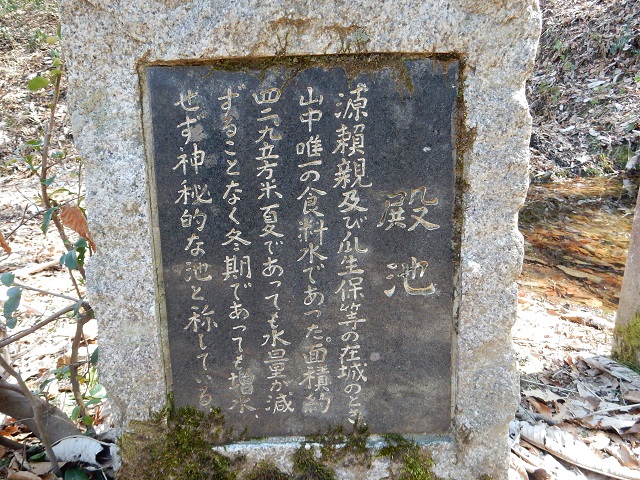 殿池
源頼親及び瓜生保等の在城のとき
山中唯一の食料水であった。面積約
四二九五方米夏であっても水量が減
ずることなく冬期であっても増水
せず神秘的な池と称している